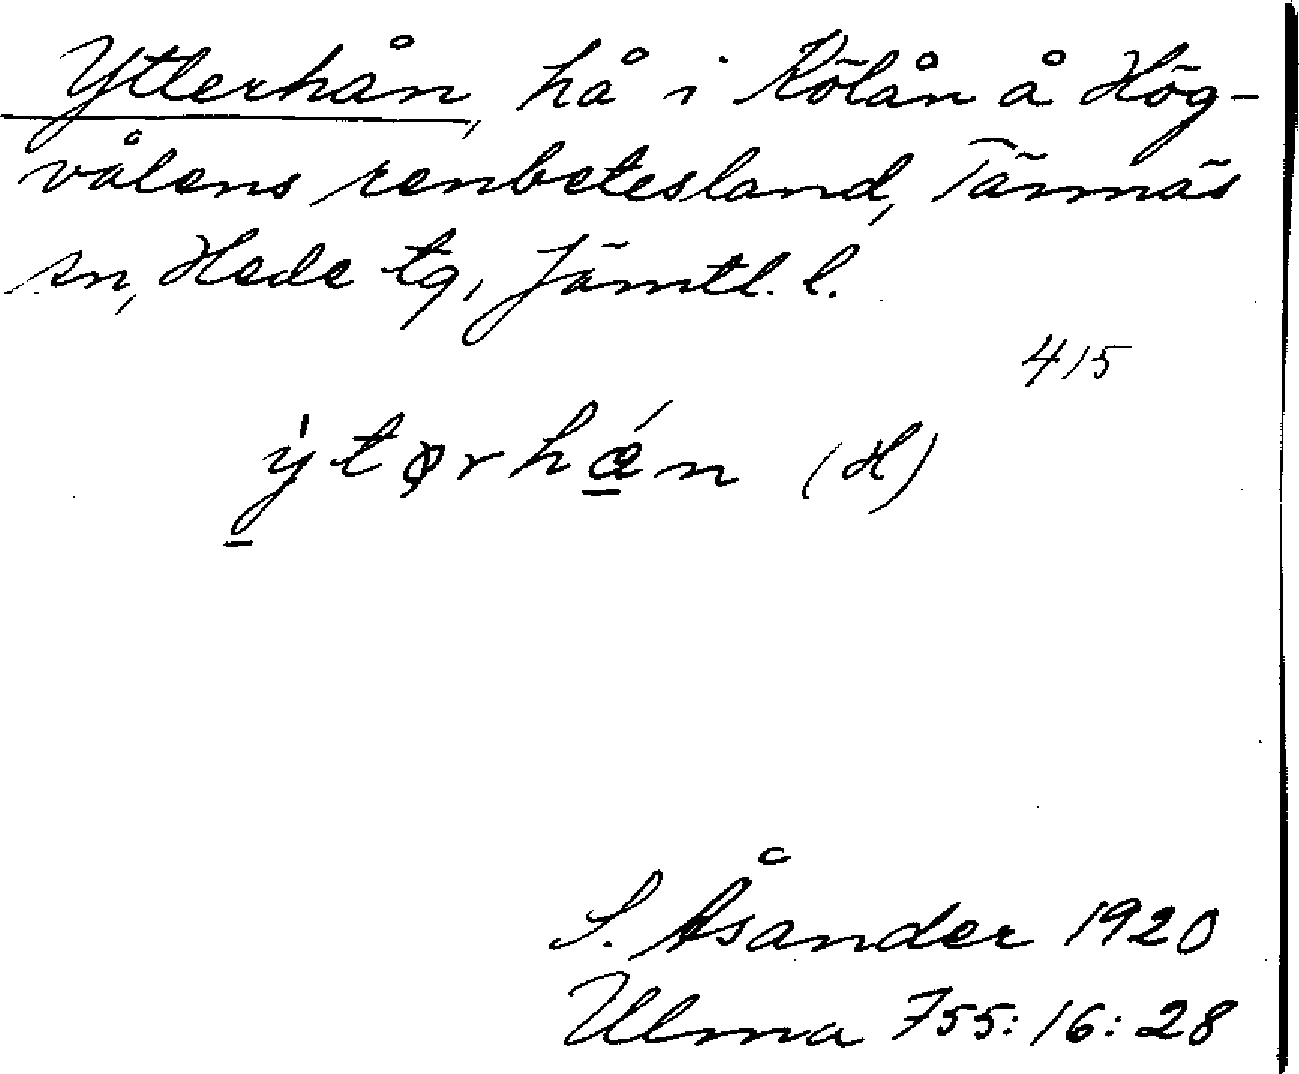 Ytterhån, hå i Kölån å Hög-
vålens renbetesland, Tännäs
sn, Hede tg, Jämtl. l.
415
ýtərhǽn (H)
S. Åsander 1920
Ulma 755:16:28